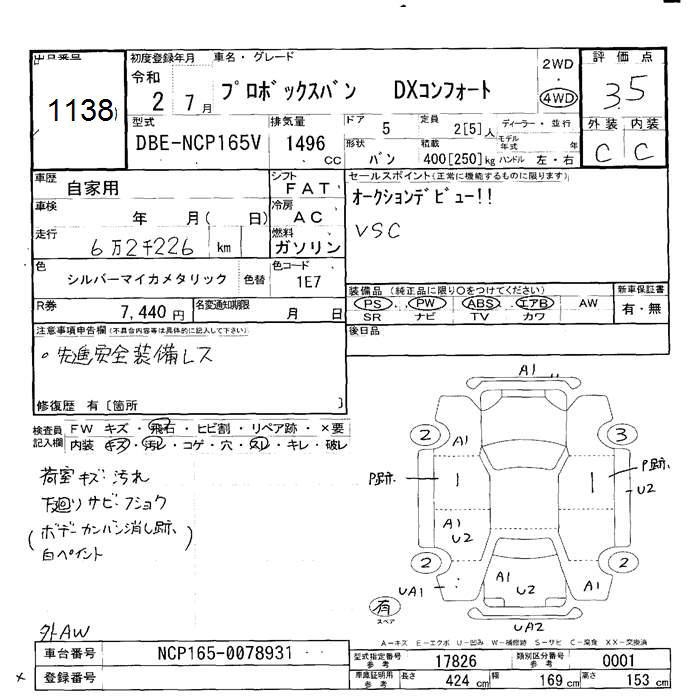 出品番号
1138
初度登録年月 車名・グレード
令和 2 7月 プロボックスバン DXコンフォート
2WD ・ 4WD
評価点
3.5
外装 内装
C C
型式 DBE-NCP165V
排気量 1496 CC
ドア 5 定員 2[5]人 ディーラー・並行
形状 バン 積載 400[250]kg モデル年式 年 ハンドル 左・右
車歴 自家用
シフト FAT
車検 年 月( 日)
冷房 AC
走行 6万2千226 km
燃料 ガソリン
色 シルバーマイカメタリック 色替
色コード 1E7
R券 7,440円 名変通知期限 月 日
セールスポイント(正常に機能するものに限ります)
オークションデビュー!!
VSC
装備品 (純正品に限り○をつけてください) 新車保証書
PS、PW、ABS、エアB、AW 有・無
SR ナビ TV カワ
後日品
注意事項申告欄(不具合内容等は具体的に記入して下さい)
・先進安全装備レス
修復歴 有〔箇所 〕
検査員記入欄
FW キズ・飛石・ヒビ割・リペア跡・×要
内装 キズ・汚レ・コゲ・穴・スレ・キレ・破レ
荷室キズ・汚れ
下廻りサビ・フショク
(ボデーカンバン消し跡、
白ペイント
外AW
A1
2 A1 3
P跡、 P跡、
U2
A1 U2
2 2
UA1 A1 U2 A1
有 スペア
UA2
A-キズ E-エクボ U-凹み W-補修跡 S-サビ C-腐食 XX-交換済
車台番号 NCP165-0078931
登録番号
型式指定番号 参考 17826 類別区分番号 参考 0001
車庫証明用 参考 長さ 424 cm 幅 169 cm 高さ 153 cm